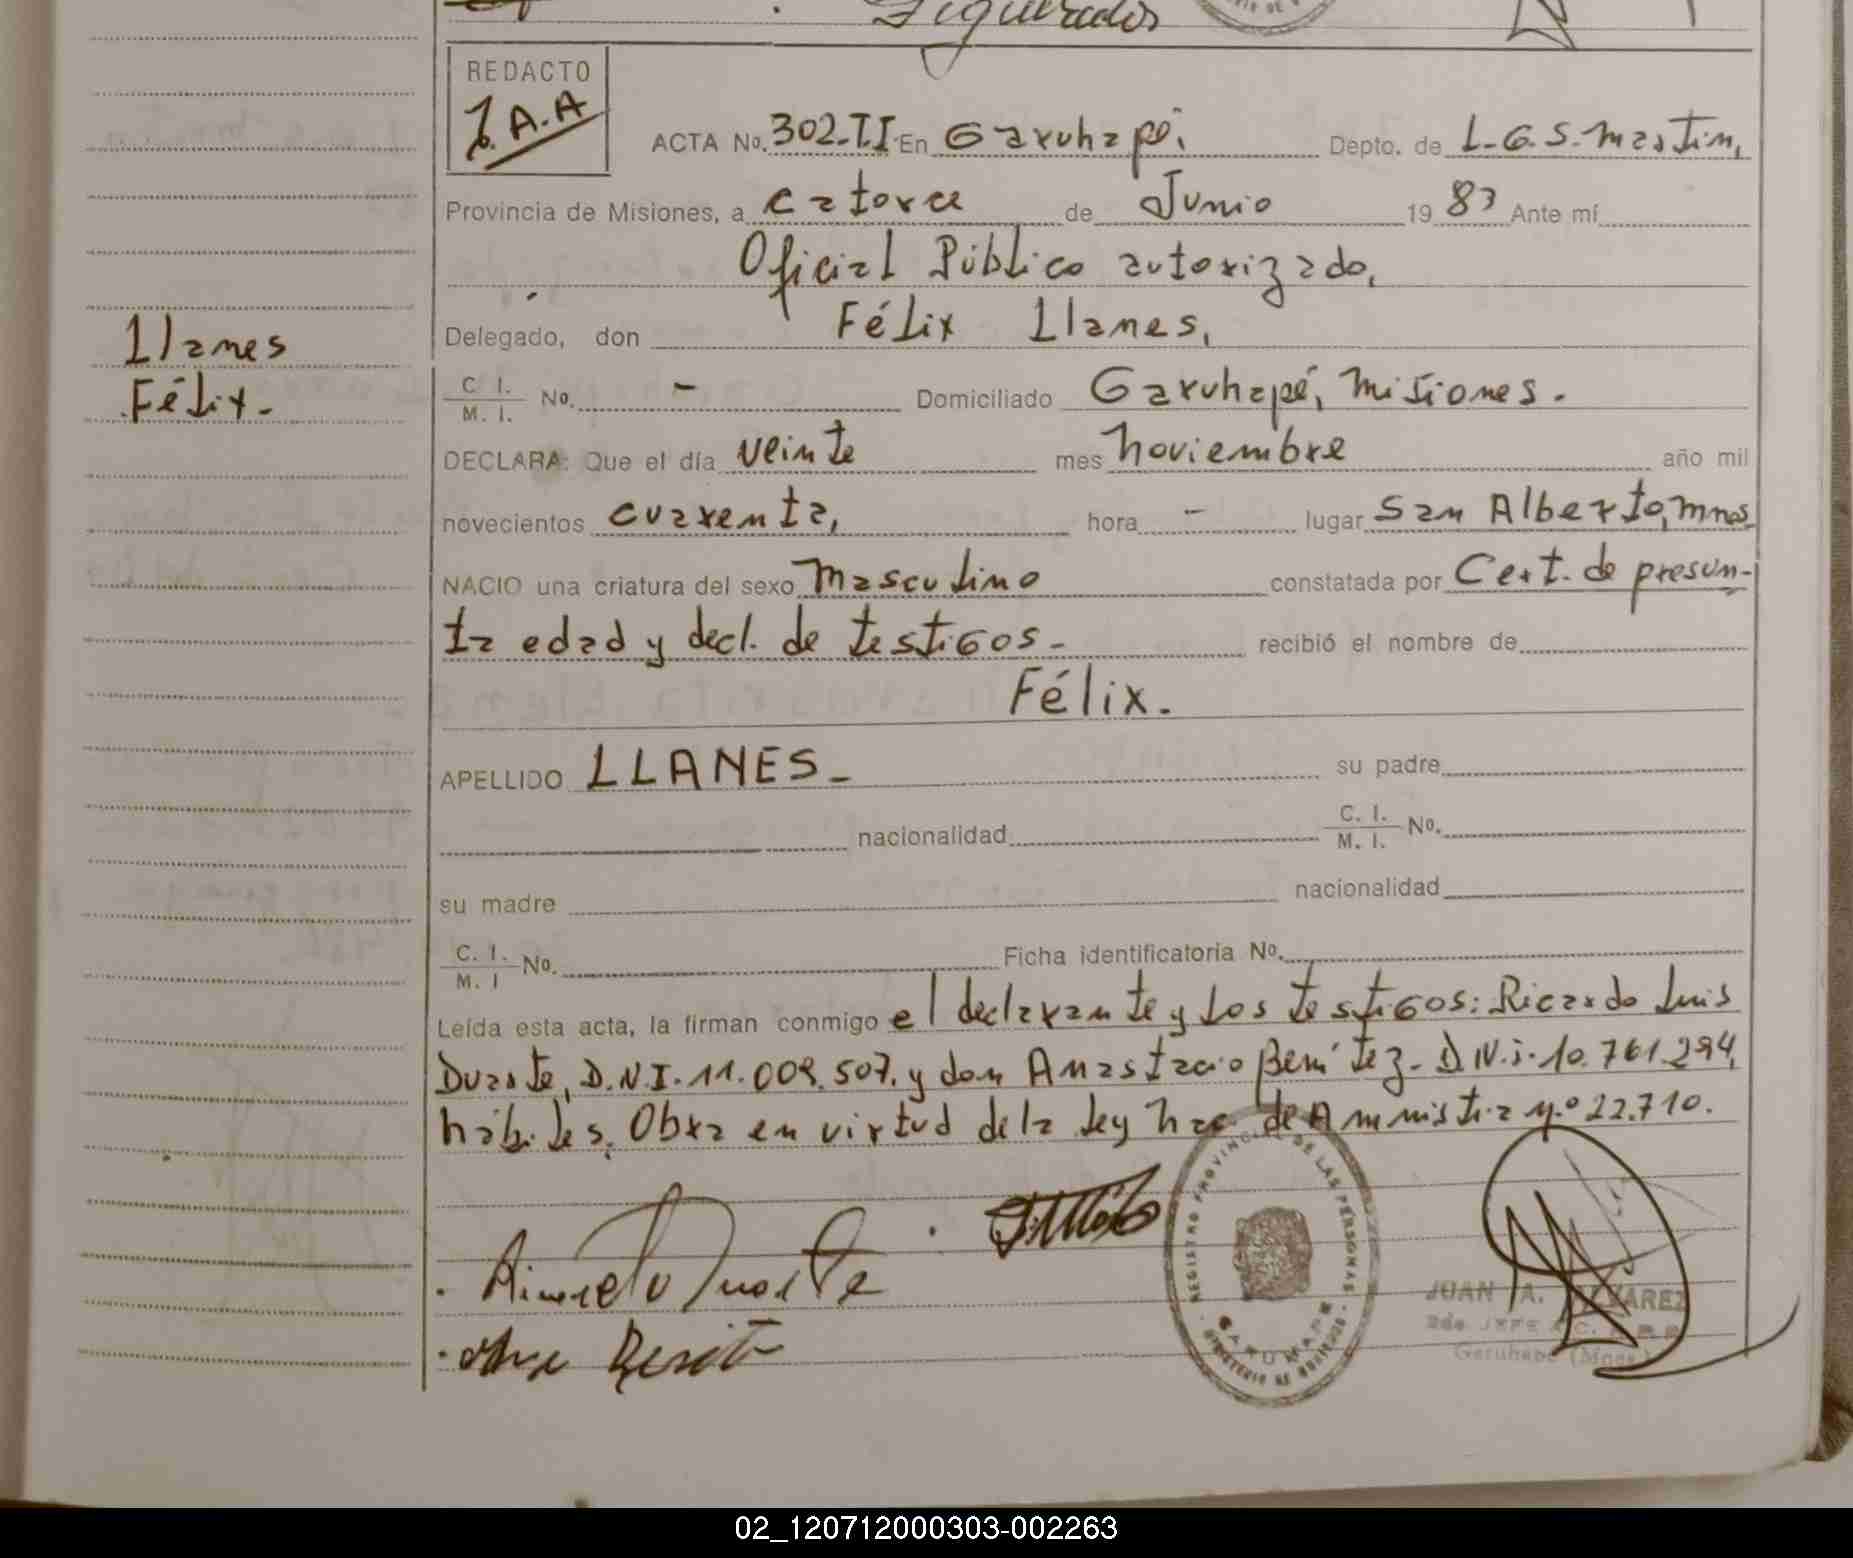 Figueredos
REDACTO
J.A.A
ACTA No. 302-II En Garuhapé. Depto. de L.G.S. Martin,
Provincia de Misiones, a catorce de Junio 19 83 Ante mí
Oficial Público autorizado,
Delegado, don Félix Llanes,
Llanes
Félix.-
C. I. / M. I. No. - Domiciliado Garuhapé, Misiones.
DECLARA: Que el día veinte mes noviembre año mil
novecientos cuarenta, hora - lugar San Alberto, Mnes.
NACIO una criatura del sexo Masculino constatada por Cert. de presun-
ta edad y decl. de testigos.- recibió el nombre de
Félix.
APELLIDO LLANES.- su padre
nacionalidad C. I. / M. I. No.
su madre nacionalidad
C. I. / M. I No. Ficha identificatoria No.
Leída esta acta, la firman conmigo el declarante y los testigos: Ricardo Luis
Duarte, D.N.I. 11.009.507. y don Anastacio Benitez- D.N.i. 10.761.294,
hábiles. Obra en virtud de la ley nac. de Amnistia n.º 22.710.
REGISTRO PROVINCIAL DE LAS PERSONAS
GARUHAPE
Duarte
JUAN A. ALVAREZ
2do JEFE
Garuhapé (Mnes.)
02_120712000303-002263